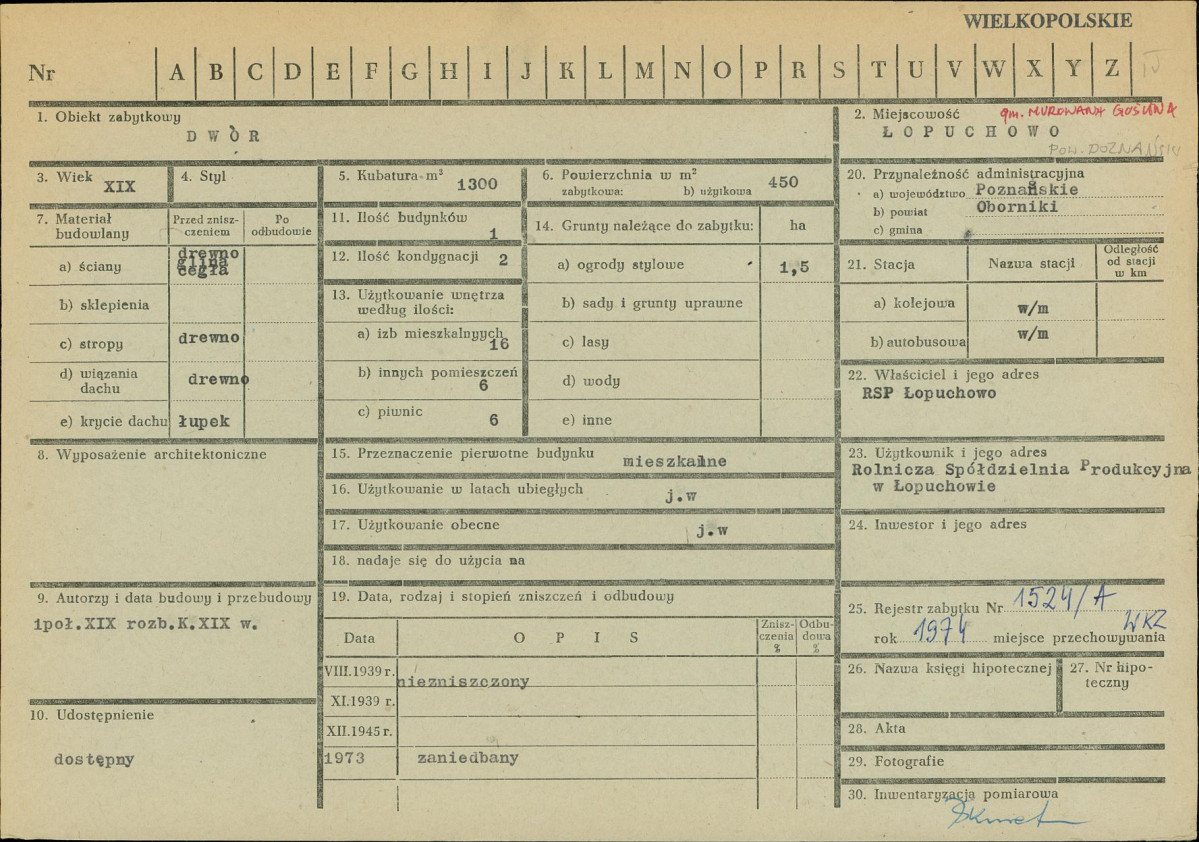 WIELKOPOLSKIE
Nr A B C D E F G H I J K L M N O P R S T U V W X Y Z IJ
1. Obiekt zabytkowy
DWÓR
2. Miejscowość gm. MUROWANA GOŚLINA
ŁOPUCHOWO
POW. POZNAŃSKI
3. Wiek XIX
4. Styl
5. Kubatura m³ 1300
6. Powierzchnia w m² 450
zabytkowa: b) użytkowa
20. Przynależność administracyjna
a) województwo Poznańskie
b) powiat Oborniki
c) gmina
7. Materiał budowlany
Przed zniszczeniem
Po odbudowie
a) ściany drewno
glina
cegła
b) sklepienia
c) stropy drewno
d) wiązania dachu drewno
e) krycie dachu łupek
11. Ilość budynków 1
12. Ilość kondygnacji 2
13. Użytkowanie wnętrza
według ilości:
a) izb mieszkalnych 16
b) innych pomieszczeń 6
c) piwnic 6
14. Grunty należące do zabytku: ha
a) ogrody stylowe 1,5
b) sady i grunty uprawne
c) lasy
d) wody
e) inne
21. Stacja Nazwa stacji
Odległość
od stacji
w km
a) kolejowa w/m
b) autobusowa w/m
22. Właściciel i jego adres
RSP Łopuchowo
8. Wyposażenie architektoniczne
15. Przeznaczenie pierwotne budynku mieszkalne
16. Użytkowanie w latach ubiegłych j.w
17. Użytkowanie obecne j.w
18. nadaje się do użycia na
23. Użytkownik i jego adres
Rolnicza Spółdzielnia Produkcyjna
w Łopuchowie
24. Inwestor i jego adres
9. Autorzy i data budowy i przebudowy
1poł.XIX rozb.K.XIX w.
19. Data, rodzaj i stopień zniszczeń i odbudowy
Data OPIS
Zniszczenia %
Odbudowa %
VIII.1939 r. niezniszczony
XI.1939 r.
XII.1945 r.
1973 zaniedbany
10. Udostępnienie
dostępny
25. Rejestr zabytku Nr 1524/A
rok 1974 miejsce przechowywania WKZ
26. Nazwa księgi hipotecznej
27. Nr hipo-
teczny
28. Akta
29. Fotografie
30. Inwentaryzacja pomiarowa